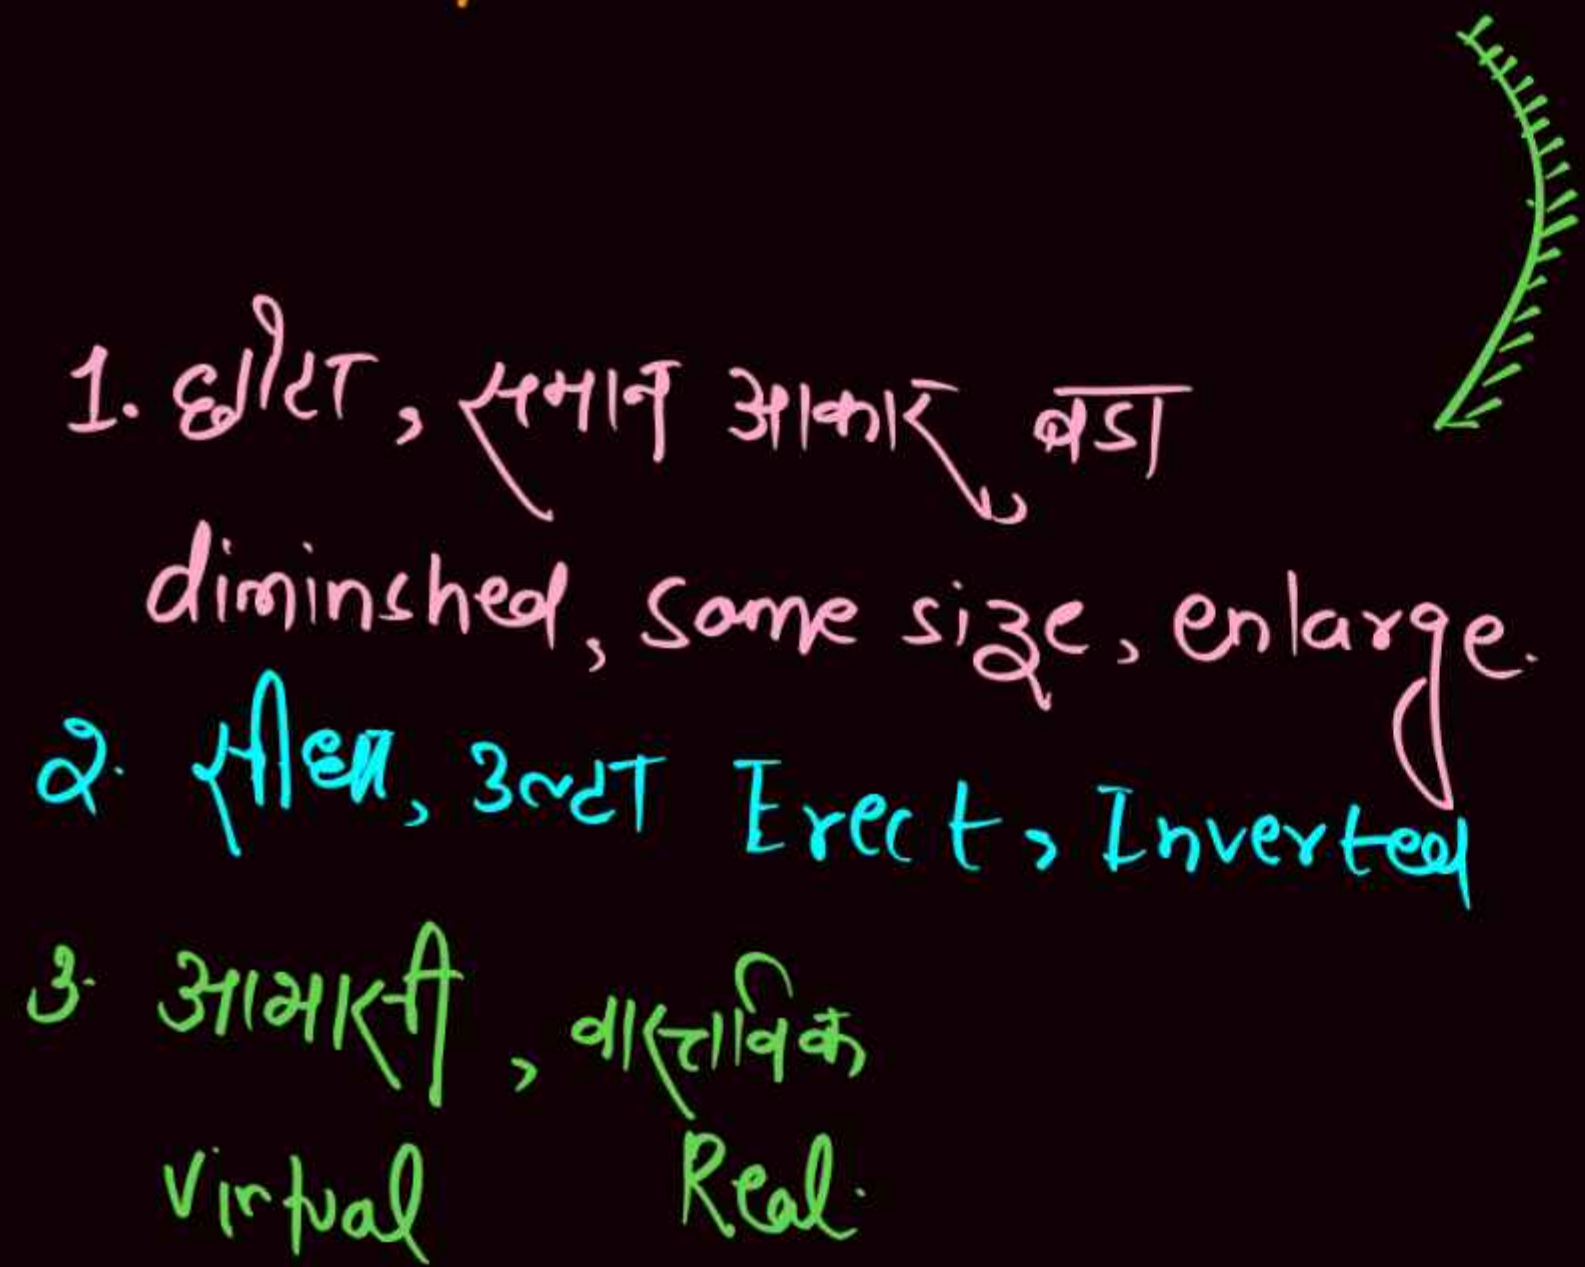 1. छोटा, समान आकार, बडा
diminshed, same size, enlarge.
2. सीधा, उल्टा Erect, Inverted
3. आभासी, वास्तविक
Virtual Real.